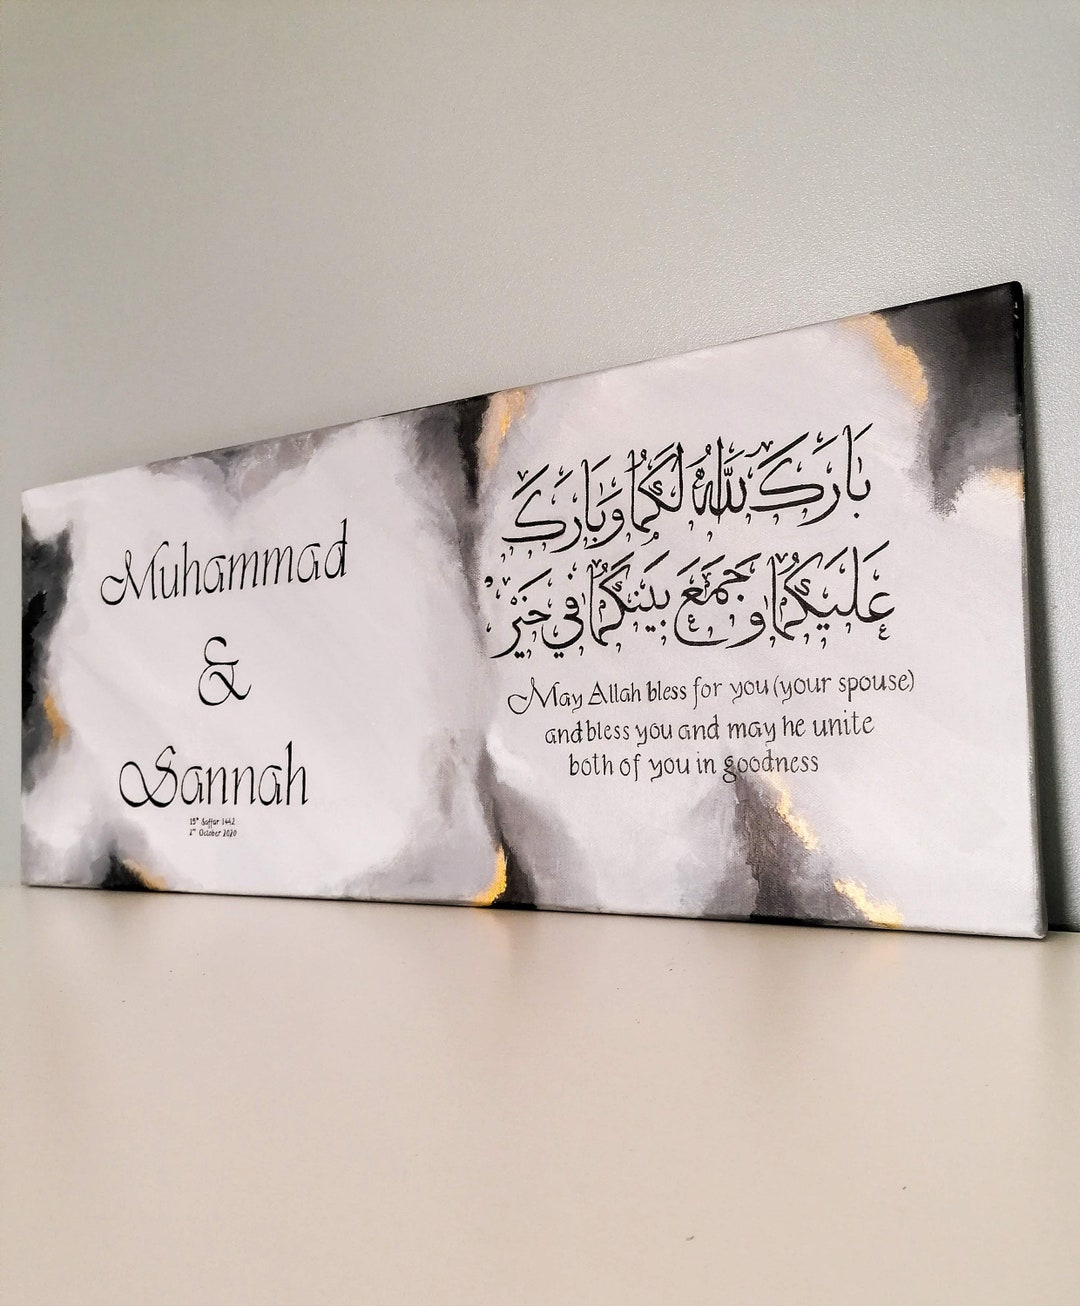 Muhammad
&
Sannah
15th Saffar 1442
2nd October 2020
بَارَكَ اللَّهُ لَكُمَا وَبَارَكَ
عَلَيكُمَا وَجَمَعَ بَينَكُمَا فِي خَيْرٍ
May Allah bless for you (your spouse)
and bless you and may he unite
both of you in goodness